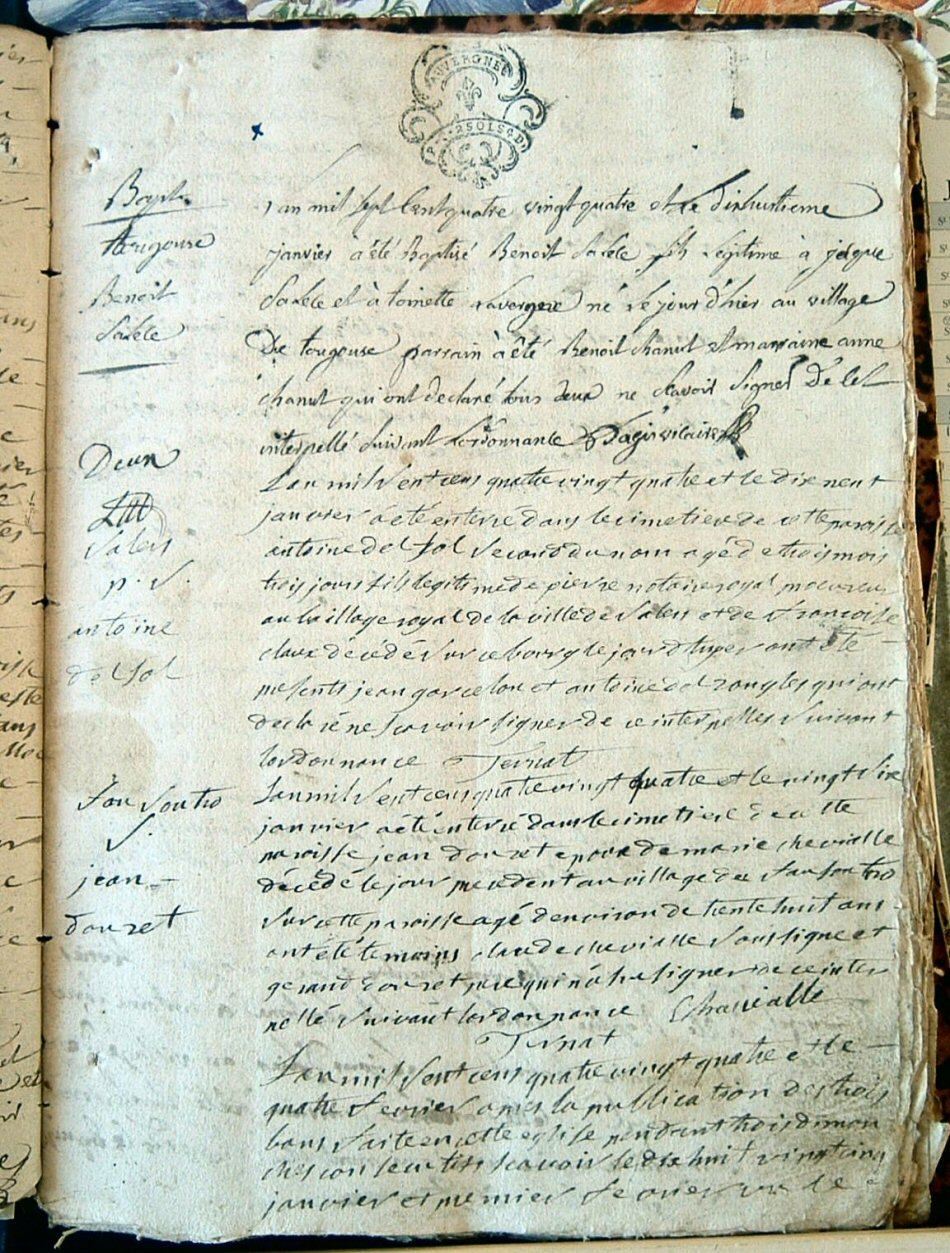 AUVERGNE
2 SOLS 4 D
Bapt.
tougouse
Benoit
Salele
l an mil sept Cent quatre vingt quatre et le dixhuitieme
janvier à été Baptisé Benoit Salele fils legitime à jacque
Salele et à toinette Lavergne né le jour d'hier au village
De tougouse parrain à été Benoit chanut et marraine anne
chanut qui ont declaré tous deux ne scavoir signer De cet
interpellé suivant Lordonnance
Deux
Salers
p. s.
antoine
delsol
Lan mil sept cens quatre vingt quatre et le dix neuf
janvier a été enterré dans le cimetiere de cette paroisse
antoine delsol second du nom agé de trois mois
trois jours fils legitime de pierre notaire royal procureur
au bailliage royal de la ville de Salers et de francoise
claux decédé sur ce bourg le jour d'hyer ont été
presents jean garcelon et antoine delzangles qui ont
declaré ne scavoir signer de ce interpelles suivant
lordonnance Ternat
fonsoutro
S.
jean
douzet
Lan mil sept cens quatre vingt quatre et le vingt six
janvier a été enterré dans le cimetiere de cette
paroisse jean douzet epoux de marie chevialle
décédé le jour precedent au village de fonsoutro
sur cette paroisse agé denviron de trente huit ans
ont été temoins claude chevialle soussigne et
geraud douzet pere qui n'a su signer de ce inter
pellé suivant lordonnance Chavialle
Ternat
Lan mil sept cens quatre vingt quatre et le
quatre fevrier apres la publication des trois
bans faite en cette eglise pendant trois diman
ches consecutifs scavoir le dix huit vingt cinq
janvier et premier fevrier